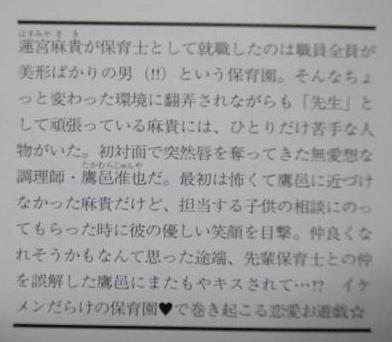 はすみや まき
蓮宮麻貴が保育士として就職したのは職員全員が
美形ばかりの男(!!)という保育園。そんなちょ
っと変わった環境に翻弄されながらも「先生」と
して頑張っている麻貴には、ひとりだけ苦手な人
物がいた。初対面で突然唇を奪ってきた無愛想な
たかむらじゅんや
調理師・鷹邑准也だ。最初は怖くて鷹邑に近づけ
なかった麻貴だけど、担当する子供の相談にのっ
てもらった時に彼の優しい笑顔を目撃。仲良くな
れそうかもなんて思った途端、先輩保育士との仲
を誤解した鷹邑にまたもやキスされて…!? イケ
メンだらけの保育園♥で巻き起こる恋愛お遊戯☆